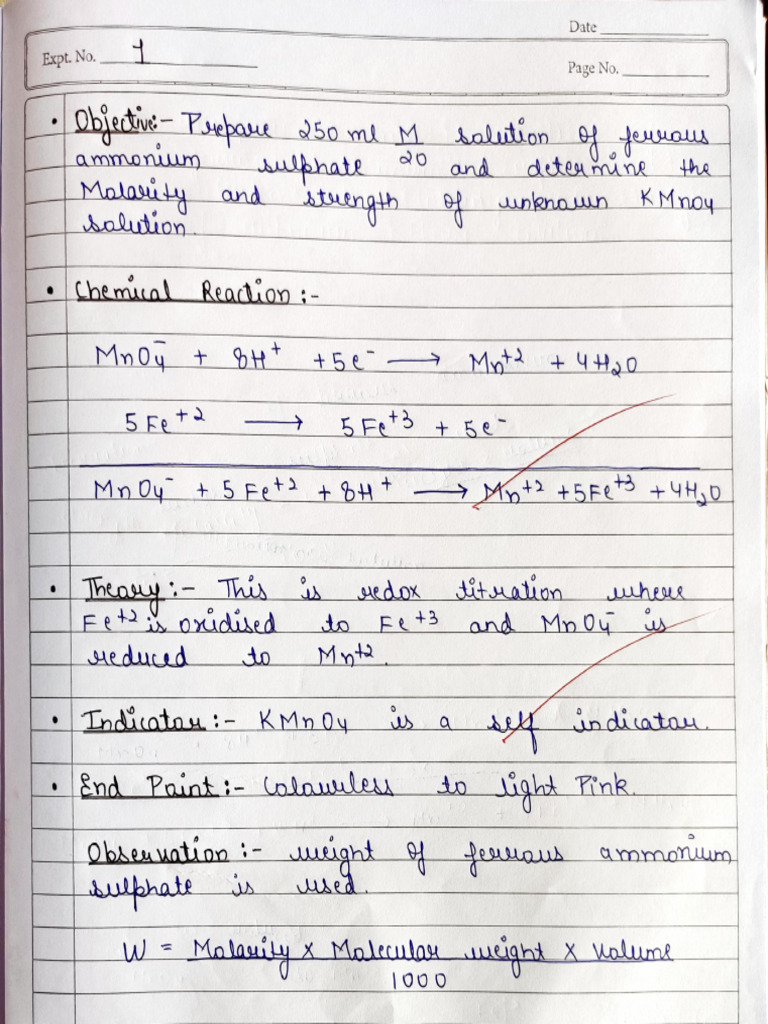 Date
Expt. No. 1
Page No.
• Objective:- Prepare 250 ml M/20 solution of ferrous
ammonium sulphate and determine the
Molarity and strength of unknown KMnO4
solution.
• Chemical Reaction :-
MnO4⁻ + 8H⁺ + 5e⁻ ⟶ Mn⁺² + 4H₂O
5Fe⁺² ⟶ 5Fe⁺³ + 5e⁻
MnO4⁻ + 5Fe⁺² + 8H⁺ ⟶ Mn⁺² + 5Fe⁺³ + 4H₂O
• Theory:- This is redox titration where
Fe⁺² is oxidised to Fe⁺³ and MnO4⁻ is
reduced to Mn⁺².
• Indicator:- KMnO4 is a self indicator.
• End Point:- Colourless to light Pink.
Observation :- weight of ferrous ammonium
sulphate is used.
W = Molarity x Molecular weight x volume
1000